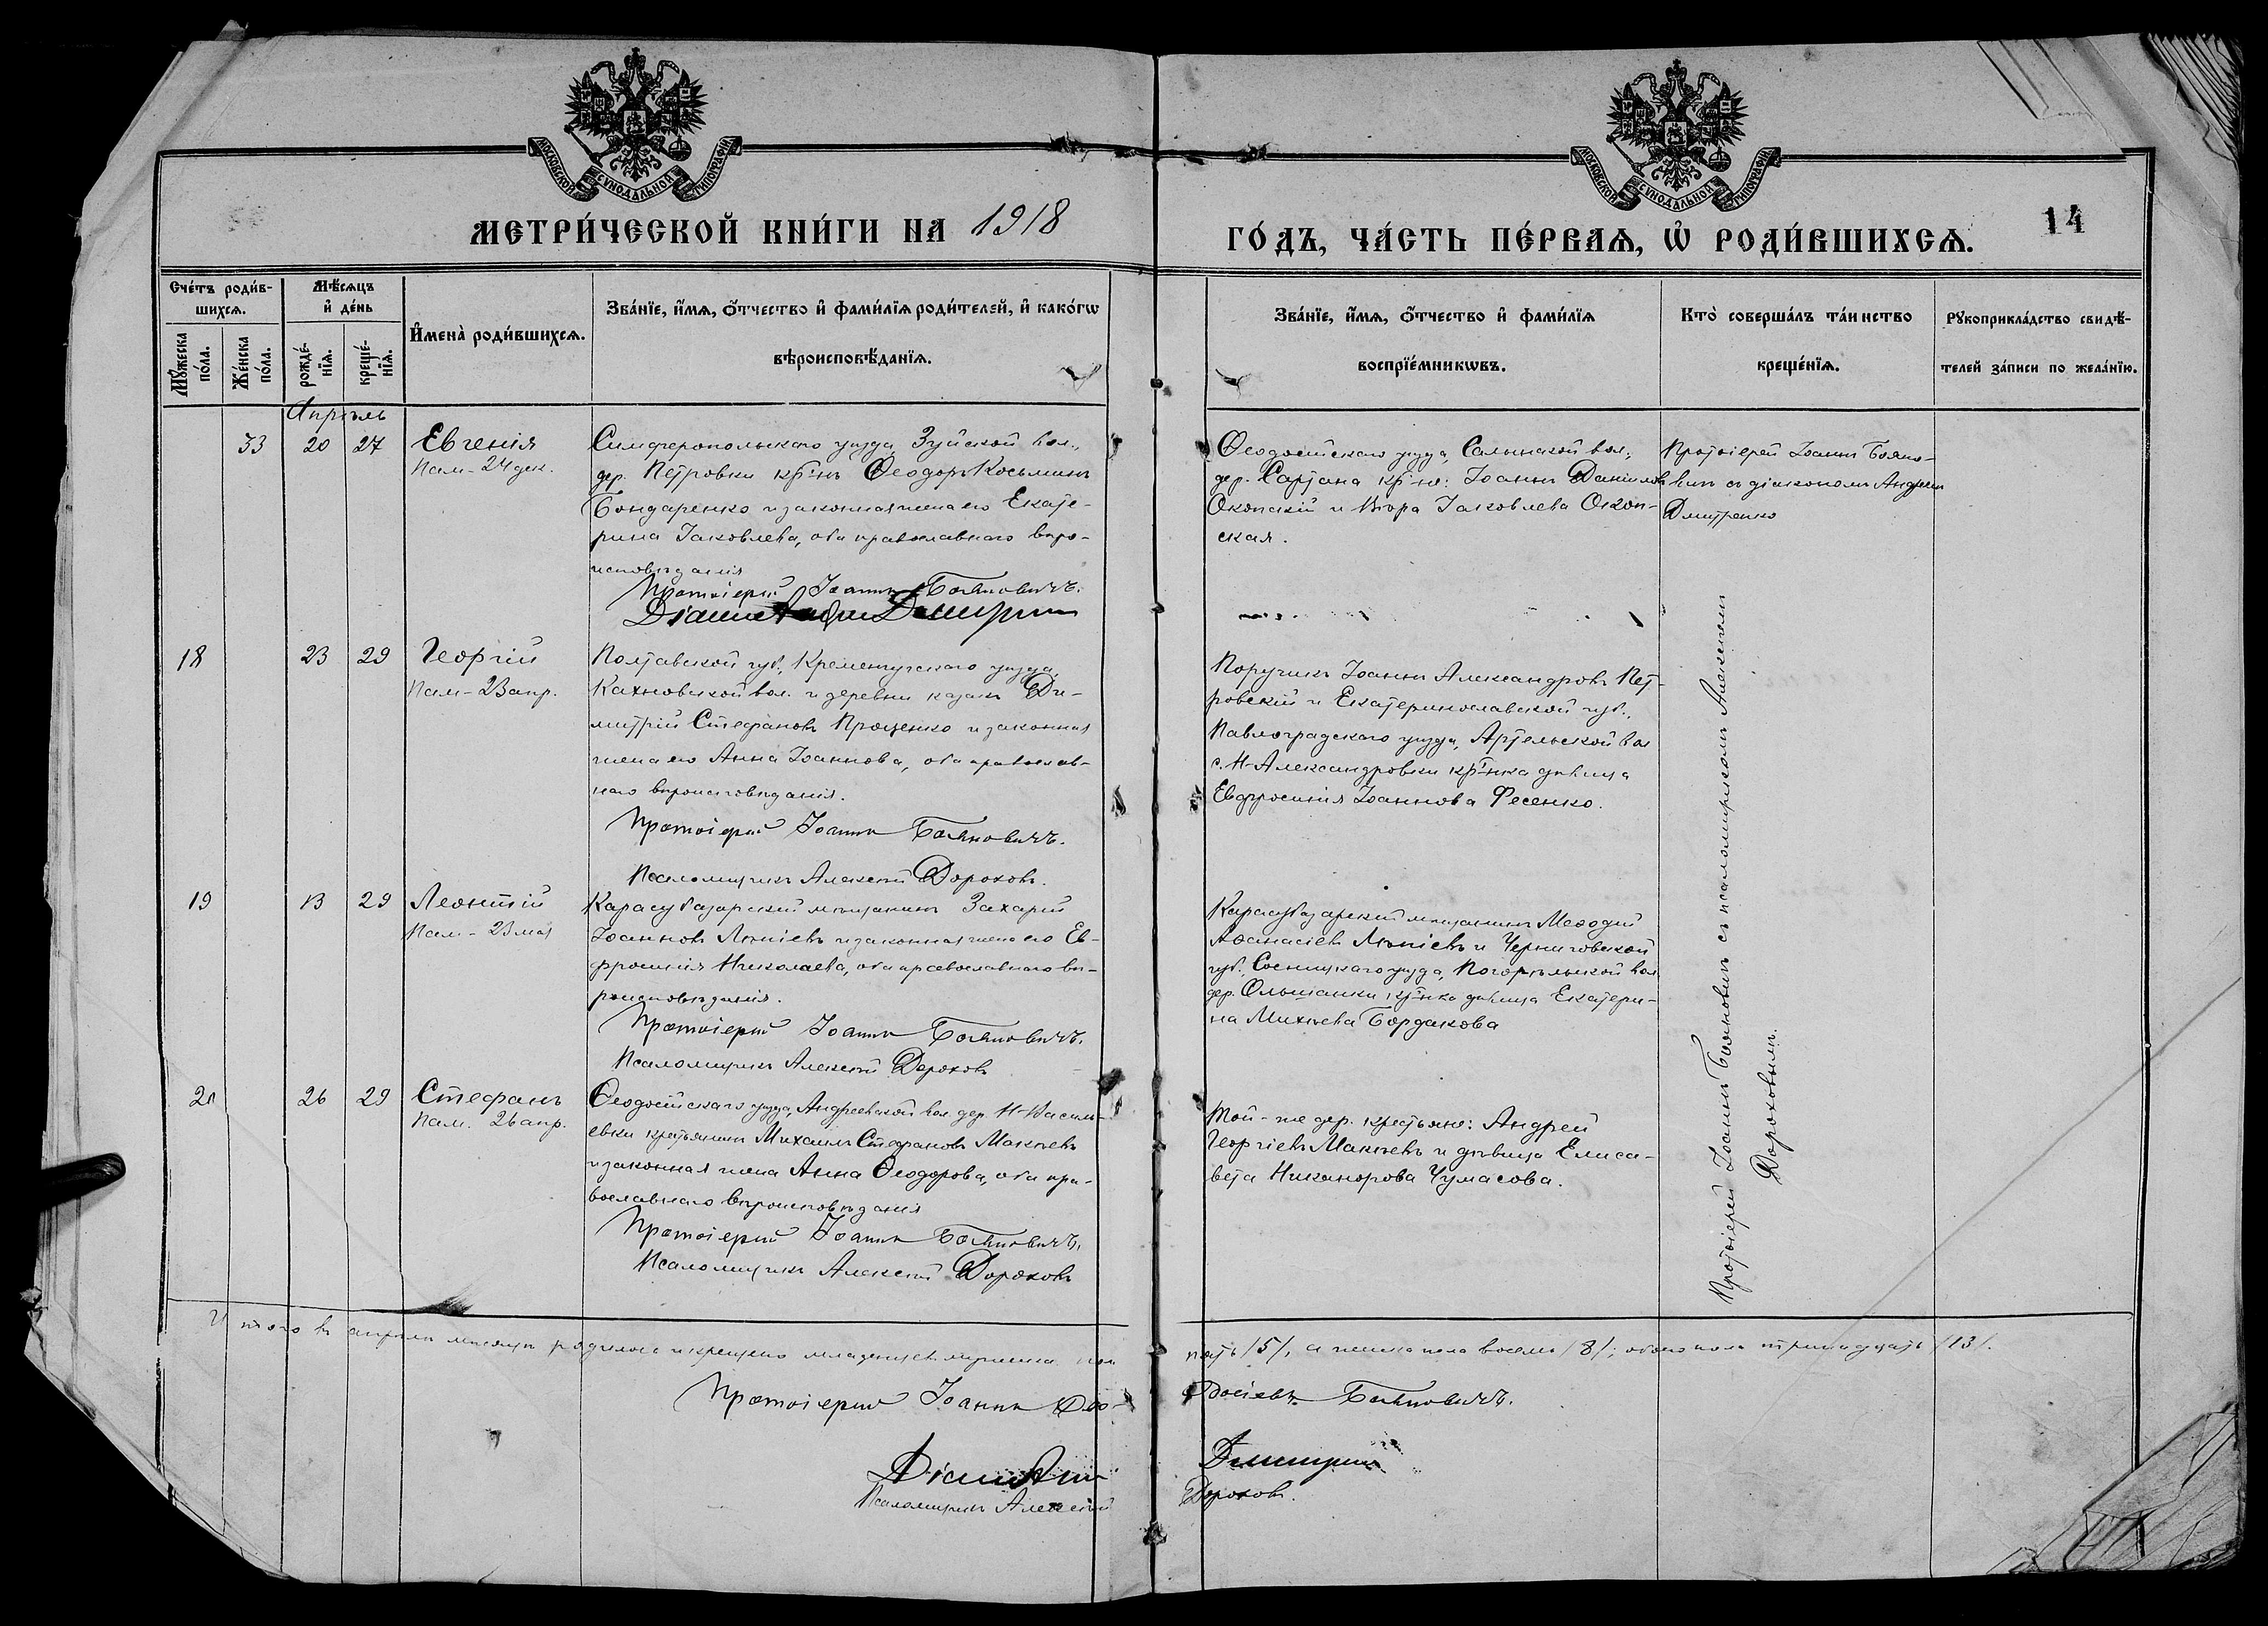 МОСКОВСКОЙ СѴНОДАЛЬНОЙ ТИПОГРАФІИ
МОСКОВСКОЙ СѴНОДАЛЬНОЙ ТИПОГРАФІИ
МЕТРИ́ЧЕСКОЙ КНИ́ГИ НА 1918
ГО́ДЪ, ЧА́СТЬ ПЕ́РВАѦ, Ѡ҆ РОДИ́ВШИХСѦ.
14
Счéтъ роди́в-
шихсѧ.
Мꙋ́жеска по́ла.
Же́нска по́ла.
Мѣ́сѧцъ
и҆ де́нь
рожде́-
нїѧ.
креще́-
нїѧ.
И҆мена̀ роди́вшихсѧ.
Зва́нїе, и҆́мѧ, ѻ҆́тчество и҆ фами́лїѧ роди́телей, и҆ како́гѡ
вѣроисповѣ́данїѧ.
Зва́нїе, и҆́мѧ, ѻ҆́тчество и҆ фами́лїѧ
воспрїе́мникѡвъ.
Кто̀ соверша́лъ та́инство
креще́нїѧ.
Рꙋкоприкла́дство свидѣ́-
телей за́писи по жела́нїю.
Апрѣль
33 20 27 Евгенія
Пам- 24 дек.
Симферопольскаго уѣзда, Зуйской вол.,
дер. Петровки кр-нъ Ѳеодоръ Косьминъ
Бондаренко и законная жена его Екате-
рина Іаковлева, оба православнаго вѣро-
исповѣданія
Протоіерей Іоаннъ Бояновичъ.
Ѳеодосійскаго уѣзда, Салынской вол.,
дер. Сартана кр-не: Іоаннъ Даніиловъ
Окопскій и Вѣра Іаковлева Окоп-
ская.
Протоіерей Іоаннъ Бояно-
вичъ съ діакономъ Андреем
Дмитренко
18 23 29 Георгій
Пам- 23 апр.
Полтавской губ., Кременчугскаго уѣзда,
Кахновской вол. и деревни казакъ Ди-
митрій Стефановъ Проценко и законная
жена его Анна Іоаннова, оба православ-
наго вѣроисповѣданія.
Протоіерей Іоаннъ Бояновичъ.
Псаломщикъ Алексій Дороховъ.
Поручикъ Іоаннъ Александровъ Пет-
ровскій и Екатеринославской губ.,
Павлоградскаго уѣзда, Артельской вол
с. Н-Александровки кр-нка дѣвица
Евфросинія Іоаннова Фесенко.
19 13 29 Леонтій
Пам- 23 мая
Карасубазарскій мѣщанинъ Захарій
Іоанновъ и законная жена его Ев-
фросинія Николаева, оба православнаго вѣ-
роисповѣданія.
Протоіерей Іоаннъ Бояновичъ.
Псаломщикъ Алексій Дороховъ
Карасубазарскій мѣщанинъ Меѳодій
Аѳанасіевъ и Черниговской
губ., Сосницкаго уѣзда, Погорѣльской вол.
дер. Ольшанки кр-нка дѣвица Екатери-
на Михеева Бордакова
20 26 29 Стефанъ
Пам. 26 апр.
Ѳеодосійскаго уѣзда, Андреевской вол. дер. Н-Василь-
евки крестьянинъ Михаилъ Стефановъ Макѣевъ
и законная жена Анна Ѳеодорова, оба пра-
вославнаго вѣроисповѣданія
Протоіерей Іоаннъ Бояновичъ.
Псаломщикъ Алексій Дороховъ
Той-же дер. крестьяне: Андрей
Георгіевъ Макѣевъ и дѣвица Елиса-
вета Никанорова Чумасова.
Протоіерей Іоаннъ Бояновичъ съ псаломщикомъ Алексіемъ
Дороховымъ.
Итого въ апрѣлѣ мѣсяцѣ родилось и крещено младенцевъ мужеска пола
пять /5/, а женска пола восемь /8/; обоего пола тринадцать /13/.
Протоіерей Іоаннъ Ѳео-
досіевъ Бояновичъ.
Псаломщикъ Алексій
Дороховъ.